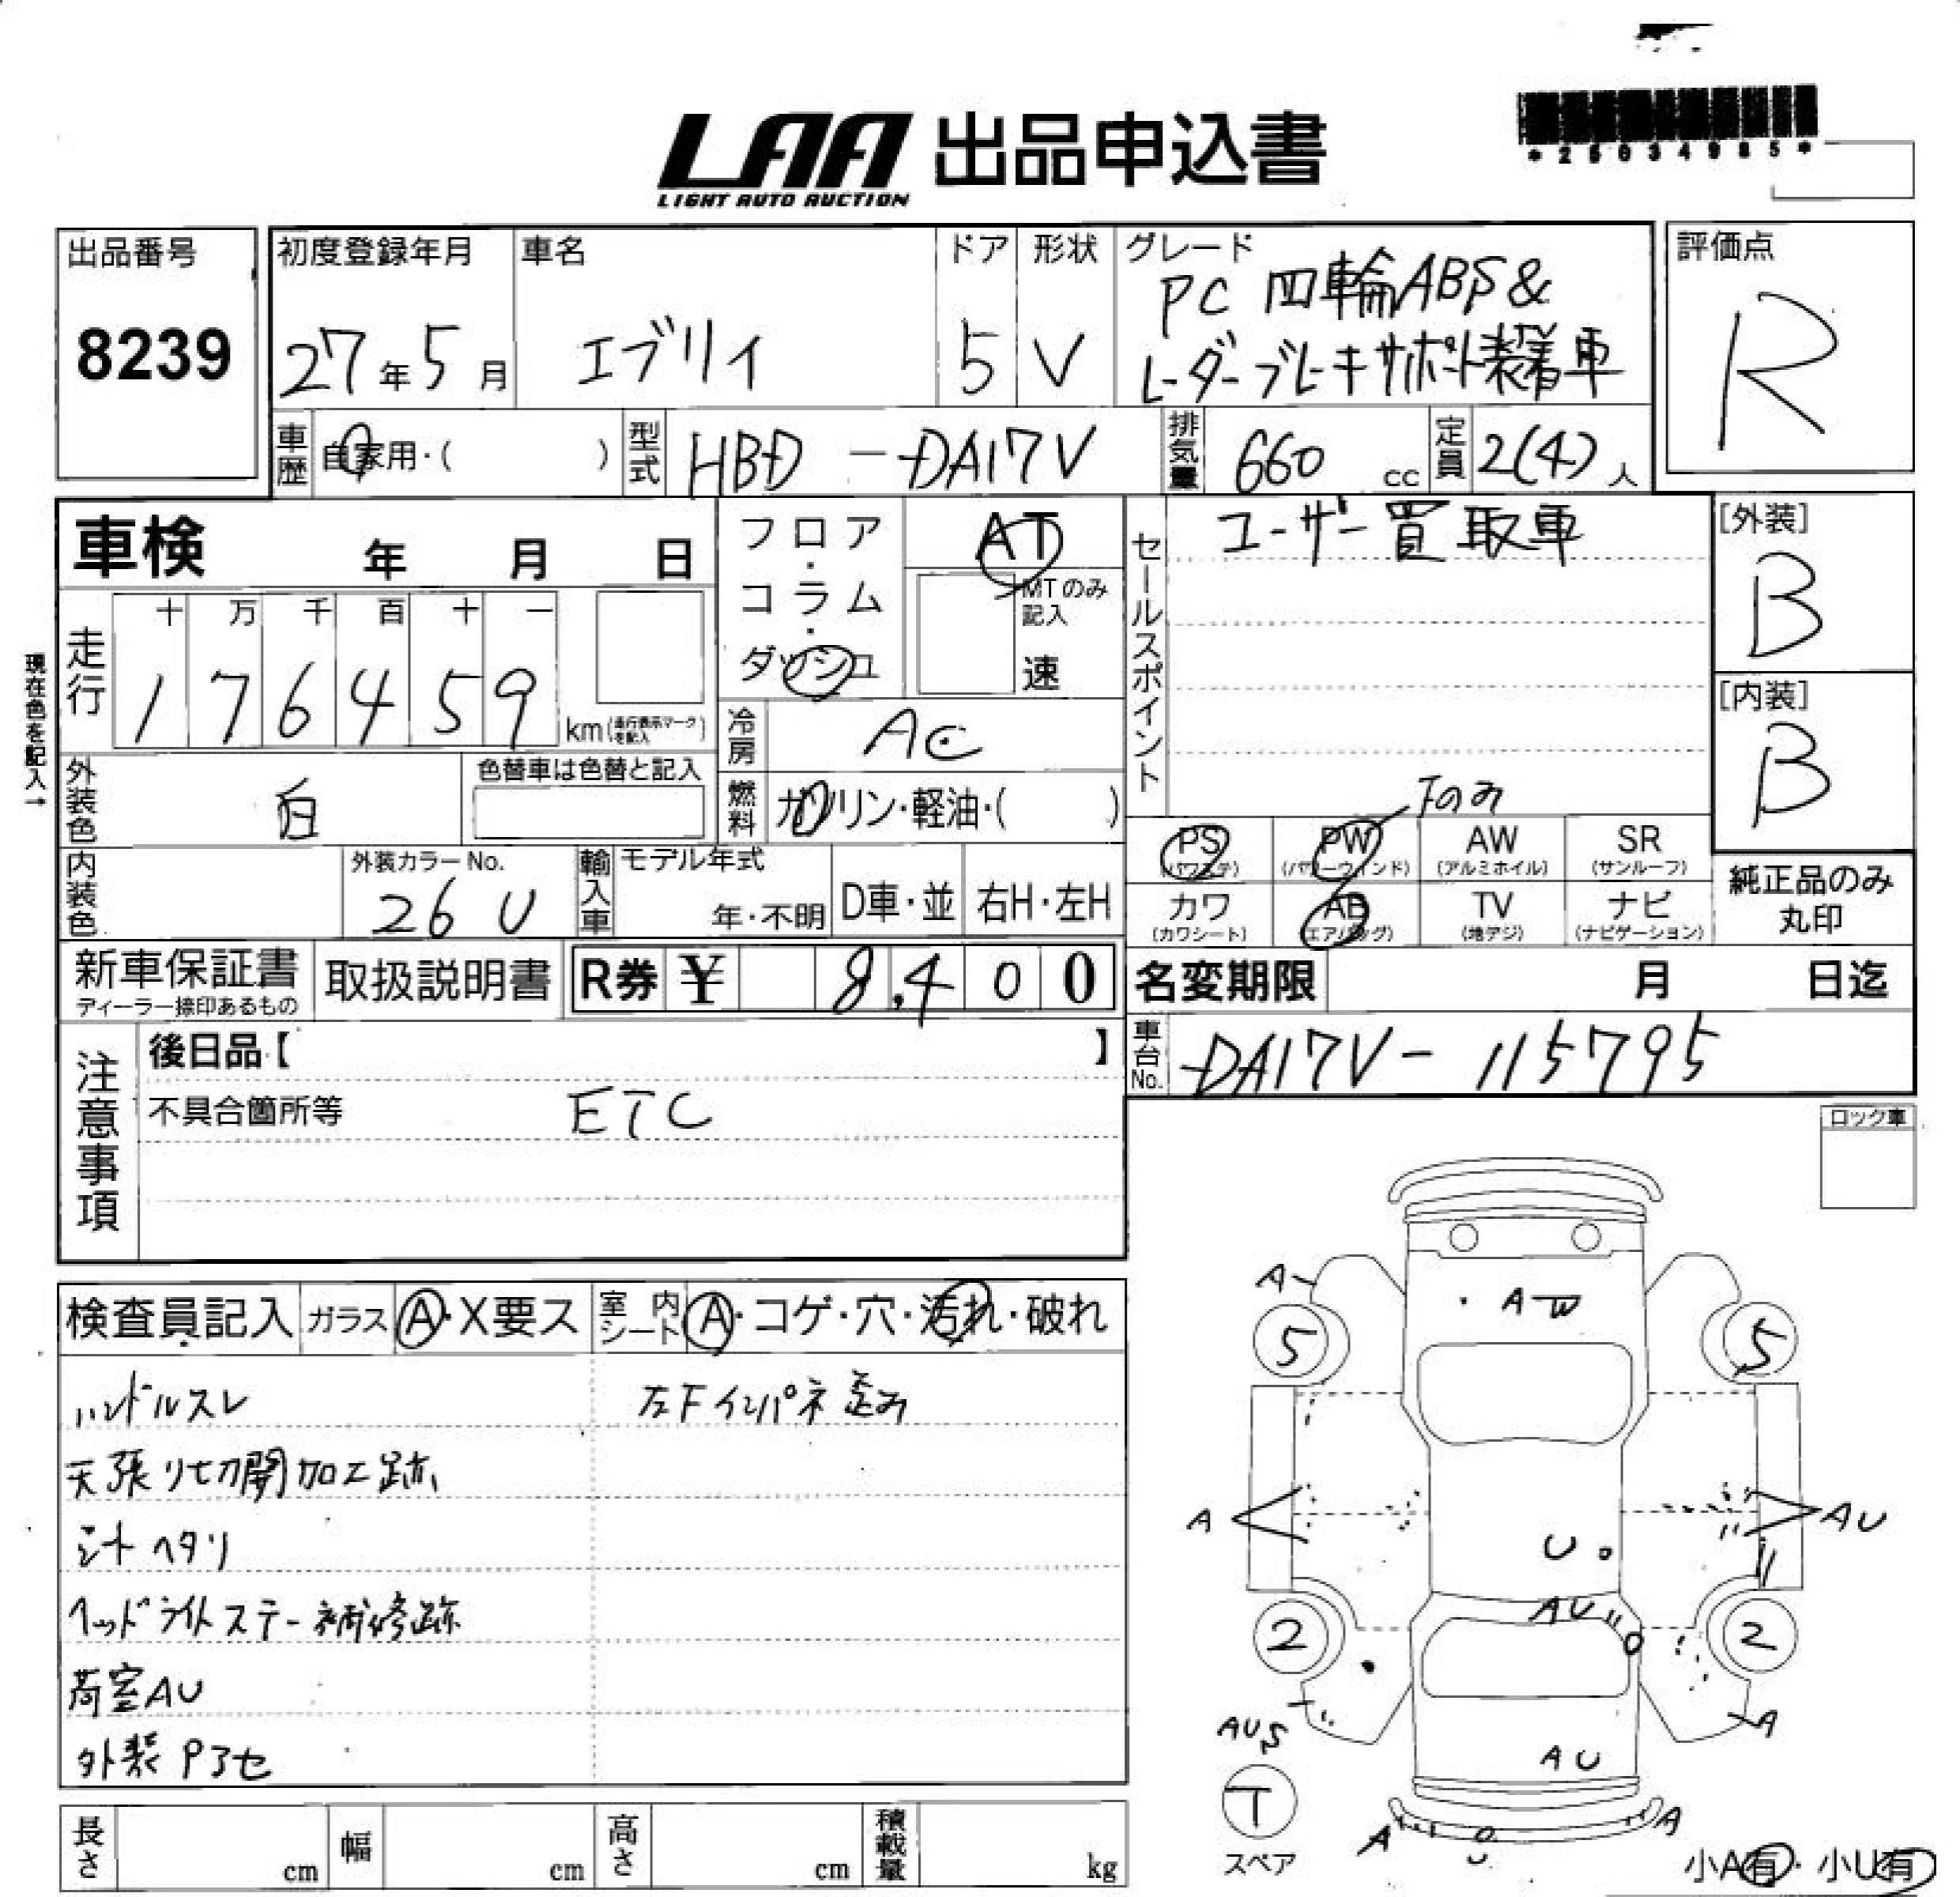 LAA 出品申込書
LIGHT AUTO AUCTION
*25034985*
出品番号
8239
初度登録年月
27年5月
車名
エブリイ
ドア
5
形状
V
グレード
PC 四輪ABS&
レーダーブレーキサポート装着車
評価点
R
車歴
自家用・( )
型式
HBD-DA17V
排気量
660 cc
定員
2(4)人
車検 年 月 日
現在色を記入→
走行
十 万 千 百 十 一
1 7 6 4 5 9
km(走行表示マークを記入)
フロア・コラム・ダッシュ
AT
MTのみ記入
速
冷房
AC
燃料
ガソリン・軽油・( )
外装色
白
色替車は色替と記入
内装色
外装カラーNo.
26U
輸入車
モデル年式
年・不明
D車・並
右H・左H
セールスポイント
ユーザー買取車
Fのみ
PS (パワステ)
PW (パワーウィンド)
AW (アルミホイル)
SR (サンルーフ)
カワ (カワシート)
AB (エアバッグ)
TV (地デジ)
ナビ (ナビゲーション)
[外装]
B
[内装]
B
純正品のみ
丸印
新車保証書
ディーラー捺印あるもの
取扱説明書
R券 ¥ 8,400
名変期限 月 日迄
車台No.
DA17V-115795
注意事項
後日品【 】
不具合箇所等
ETC
ロック車
検査員記入
ガラス A・X要ス
室内シート A・コゲ・穴・汚れ・破れ
ハンドルスレ
左Fインパネ歪み
天張り切開加工跡
シートヘタリ
ヘッドライトステー補修跡
荷室AU
外装Pアセ
A
AW
5
5
A
AU
U
AU
2
2
AUS
A
AU
T
スペア
A
A
U
小A有・小U有
長さ cm
幅 cm
高さ cm
積載量 kg